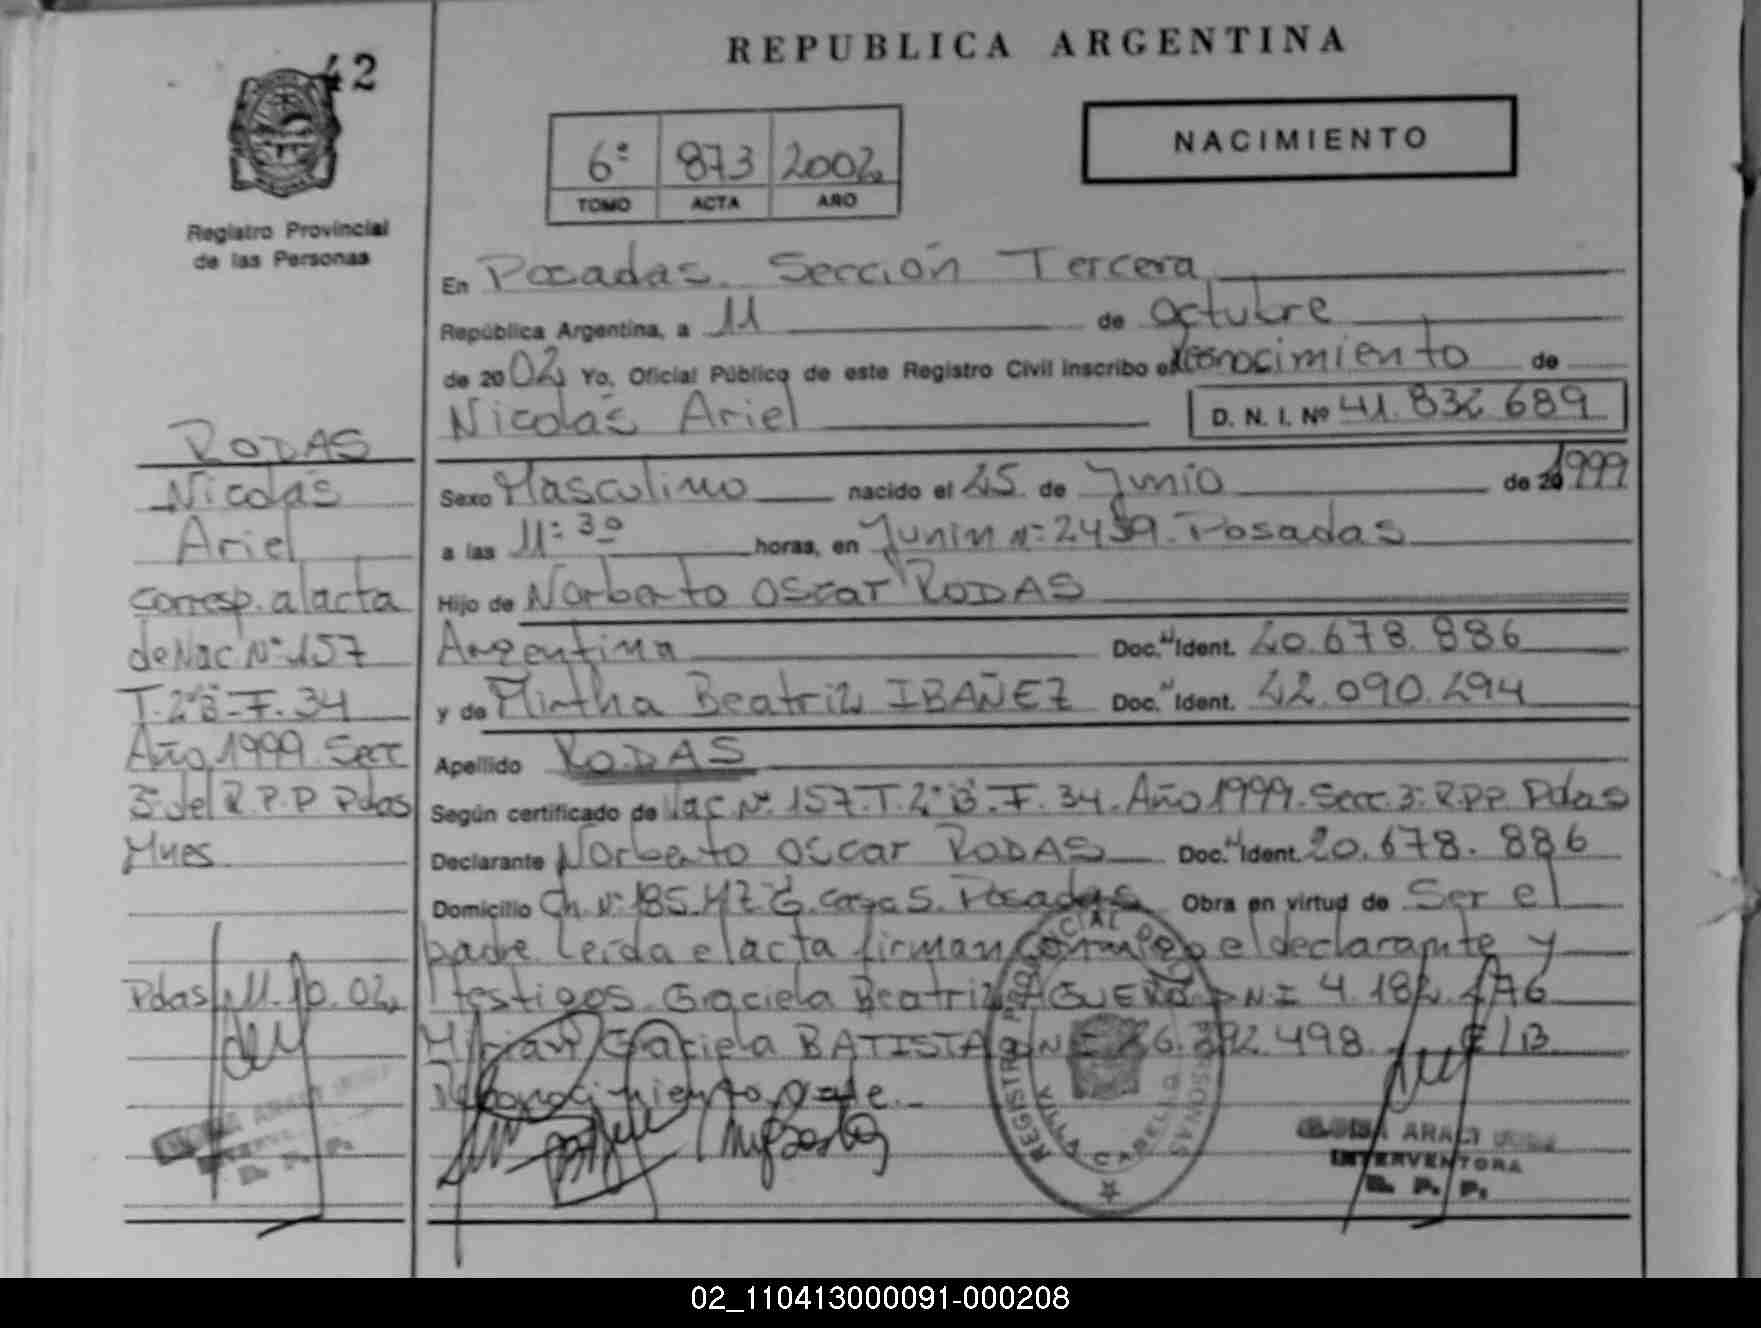 42
REPUBLICA ARGENTINA
NACIMIENTO
6º 873 2002
TOMO ACTA AÑO
Registro Provincial
de las Personas
En Posadas. Sección Tercera
República Argentina, a 11 de octubre
de 2002 Yo, Oficial Público de este Registro Civil inscribo el Reconocimiento de
Nicolás Ariel D. N. I. Nº 41.832.689
Sexo Masculino nacido el 25 de Junio de 20 1999
a las 11:30 horas, en Junin nº 2459. Posadas
Hijo de Norberto Oscar RODAS
Argentina Doc. N Ident. 20.678.886
y de Mirtha Beatriz IBAÑEZ Doc. N Ident. 22.090.294
Apellido RODAS
Según certificado de Nac. Nº 157. T. 2º B. F. 34. Año 1999. Secc. 3º R.P.P. Pdas
Declarante Norberto Oscar RODAS Doc. N Ident. 20.678.886
Domicilio Ch. Nº 185. MZ. G. casa 5. Posadas Obra en virtud de Ser el
padre. Leída el acta firman conmigo el declarante y
testigos. Graciela Beatriz AGUERO D.N.I 4.182.
Miriam Graciela BATISTA D.N.I 26.392.498
Reconocimiento vale.
RODAS
Nicolás
Ariel
corresp. al acta
de Nac Nº 157
T. 2º B. F. 34
Año 1999. Secc
3º del R.P.P Pdas
Mnes
Pdas, 11.10.02
REGISTRO PROVINCIAL DE LAS PERSONAS
VILLA CABELLO
ARACI
INTERVENTORA
R. P. P.
R. P. P.
02_110413000091-000208